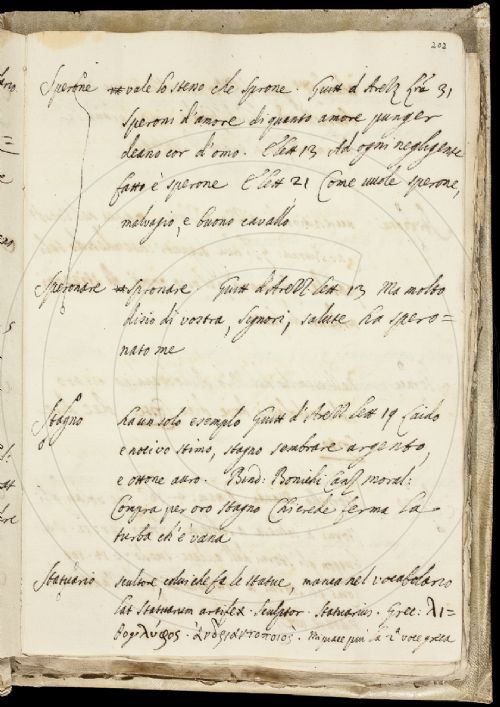 202
Sperone vale lo stesso che sprone. Guitt d'Arezz Lrã 31
Speroni d'amore di quanto amore punger
deano cor d'omo. E lett 13 Ad ogni negligente
fatto è sperone E lett 21 Come vuole sperone,
malvagio, e buono cavallo
Speronare Spronare. Guitt d'Arezz Lett 13 Ma molto
disio di vostra, Signori, salute ha spero=
nato me
Stagno ha un solo esemplo Guitt d'Arezz Lett 19 Laido
e notivo stimo, stagno sembrare argento,
e ottone auro. Bind: Bonichi Canz moral:
Compra per oro stagno Chi crede ferma la
turba ch'è vana
Statuario scultore, colui che fa le statue, manca nel vocabolario
lat Statuarum artifex. Sculptor. Statuarius. Grec. λι=
θογλύφος. ἀνδριαντοποιός. mi piace più la voce greca